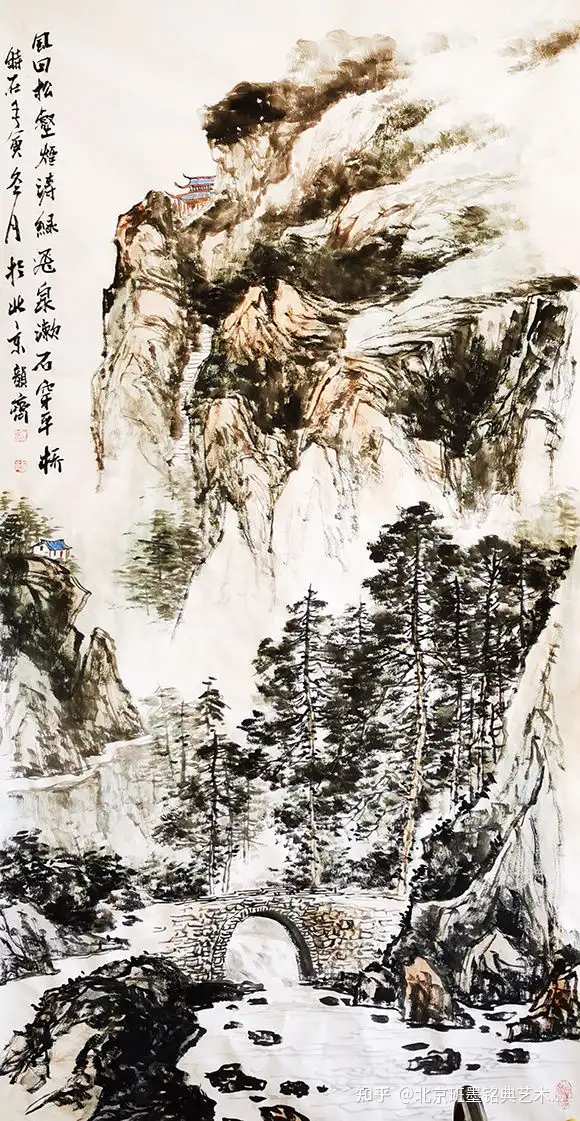 風回松壑煙濤緑飛泉漱石穿平橋
時在壬寅冬月於北京韻齋
知乎 @北京班墨铭典艺术...